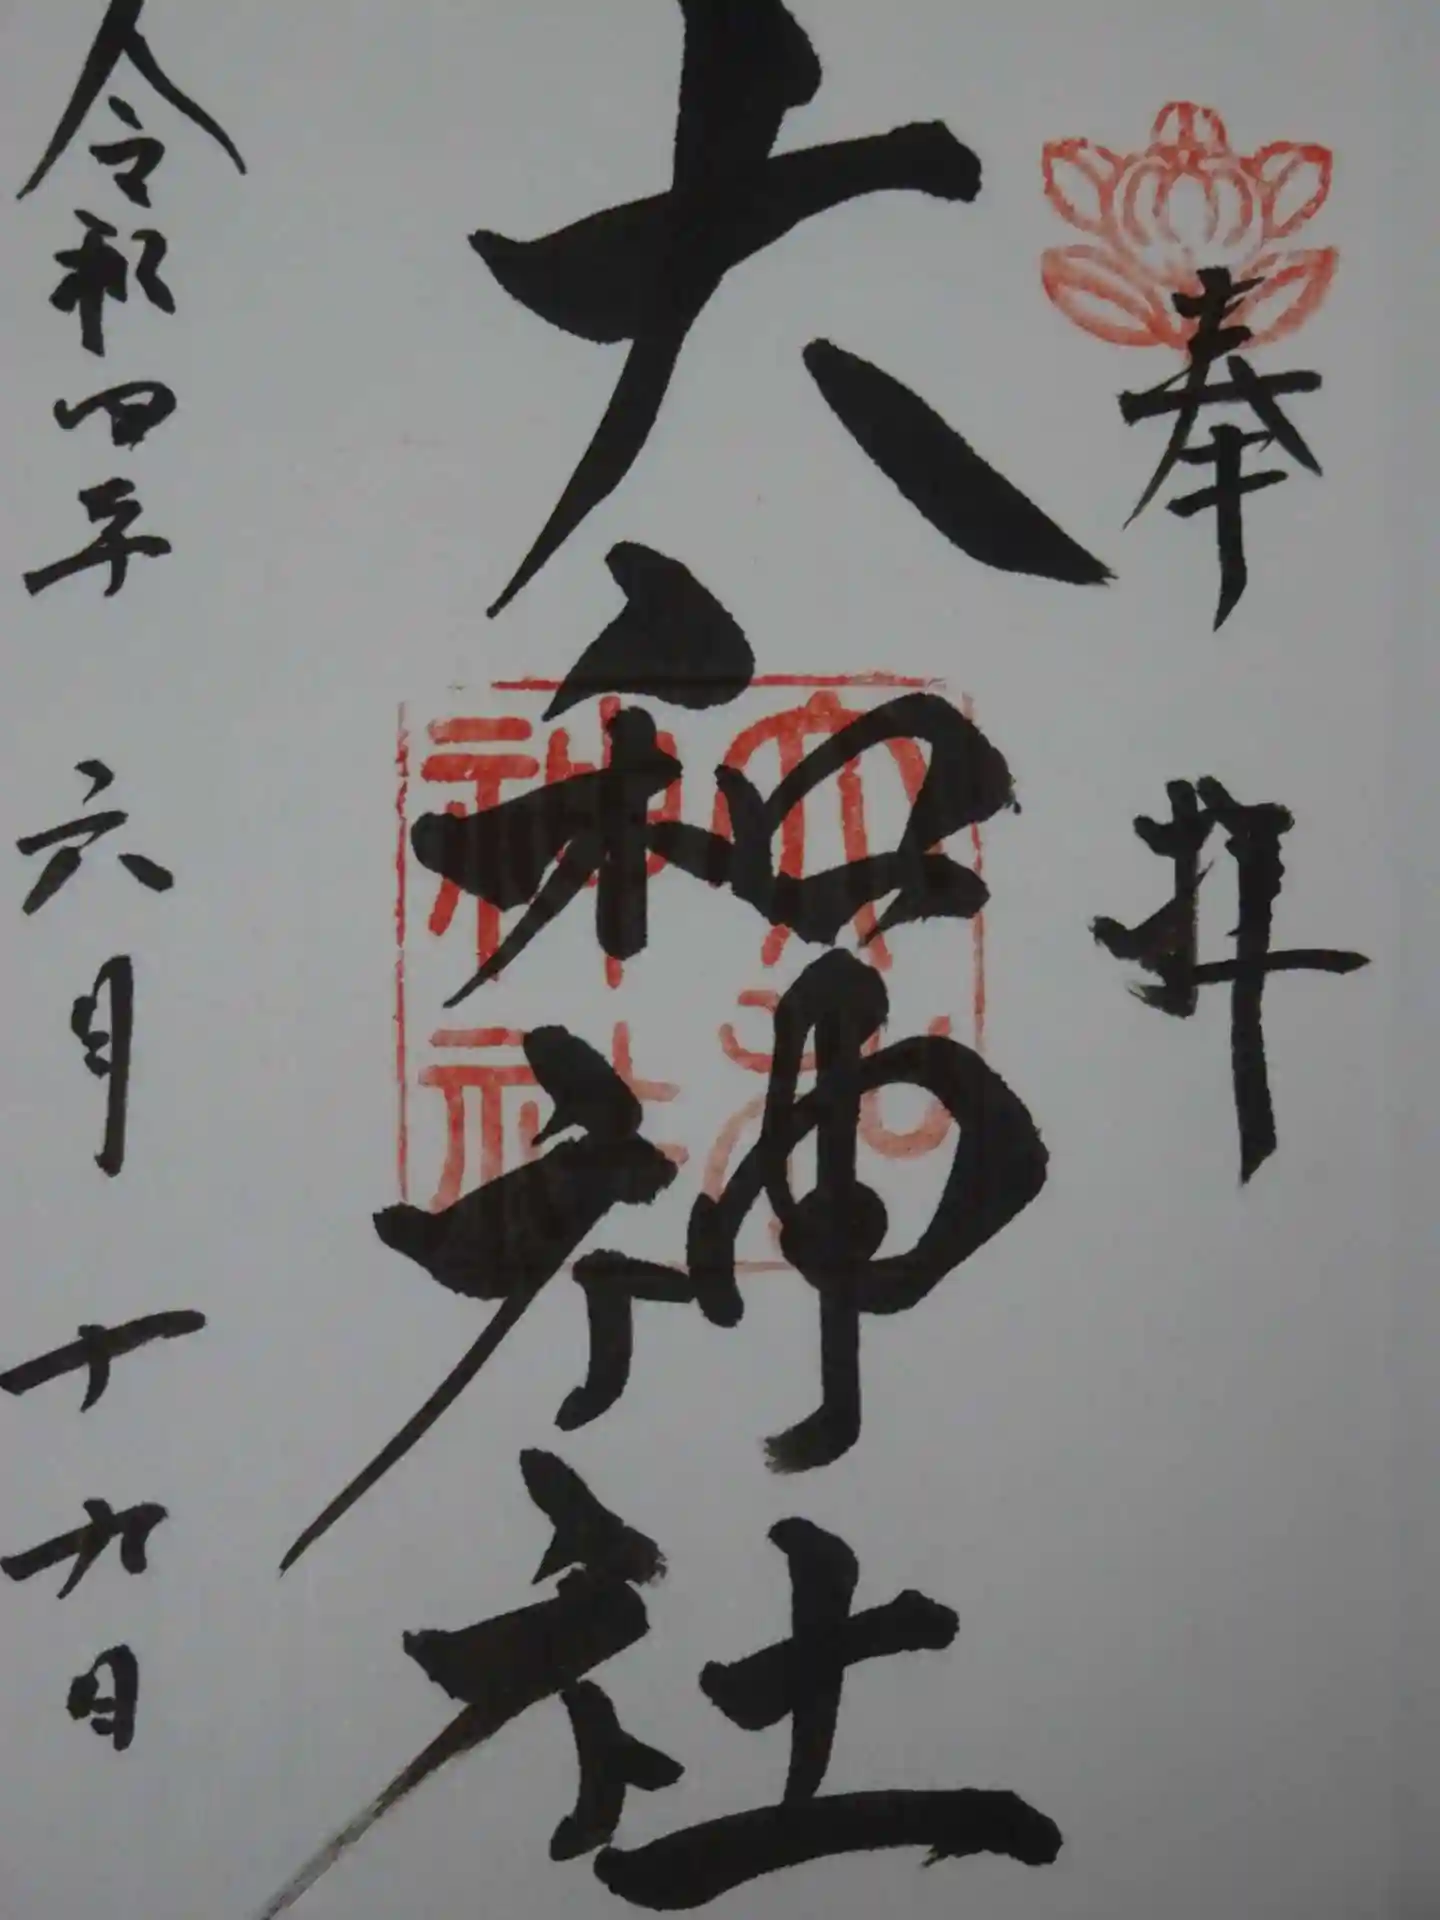 奉拝
大和神社
大和神社
令和四年六月十九日